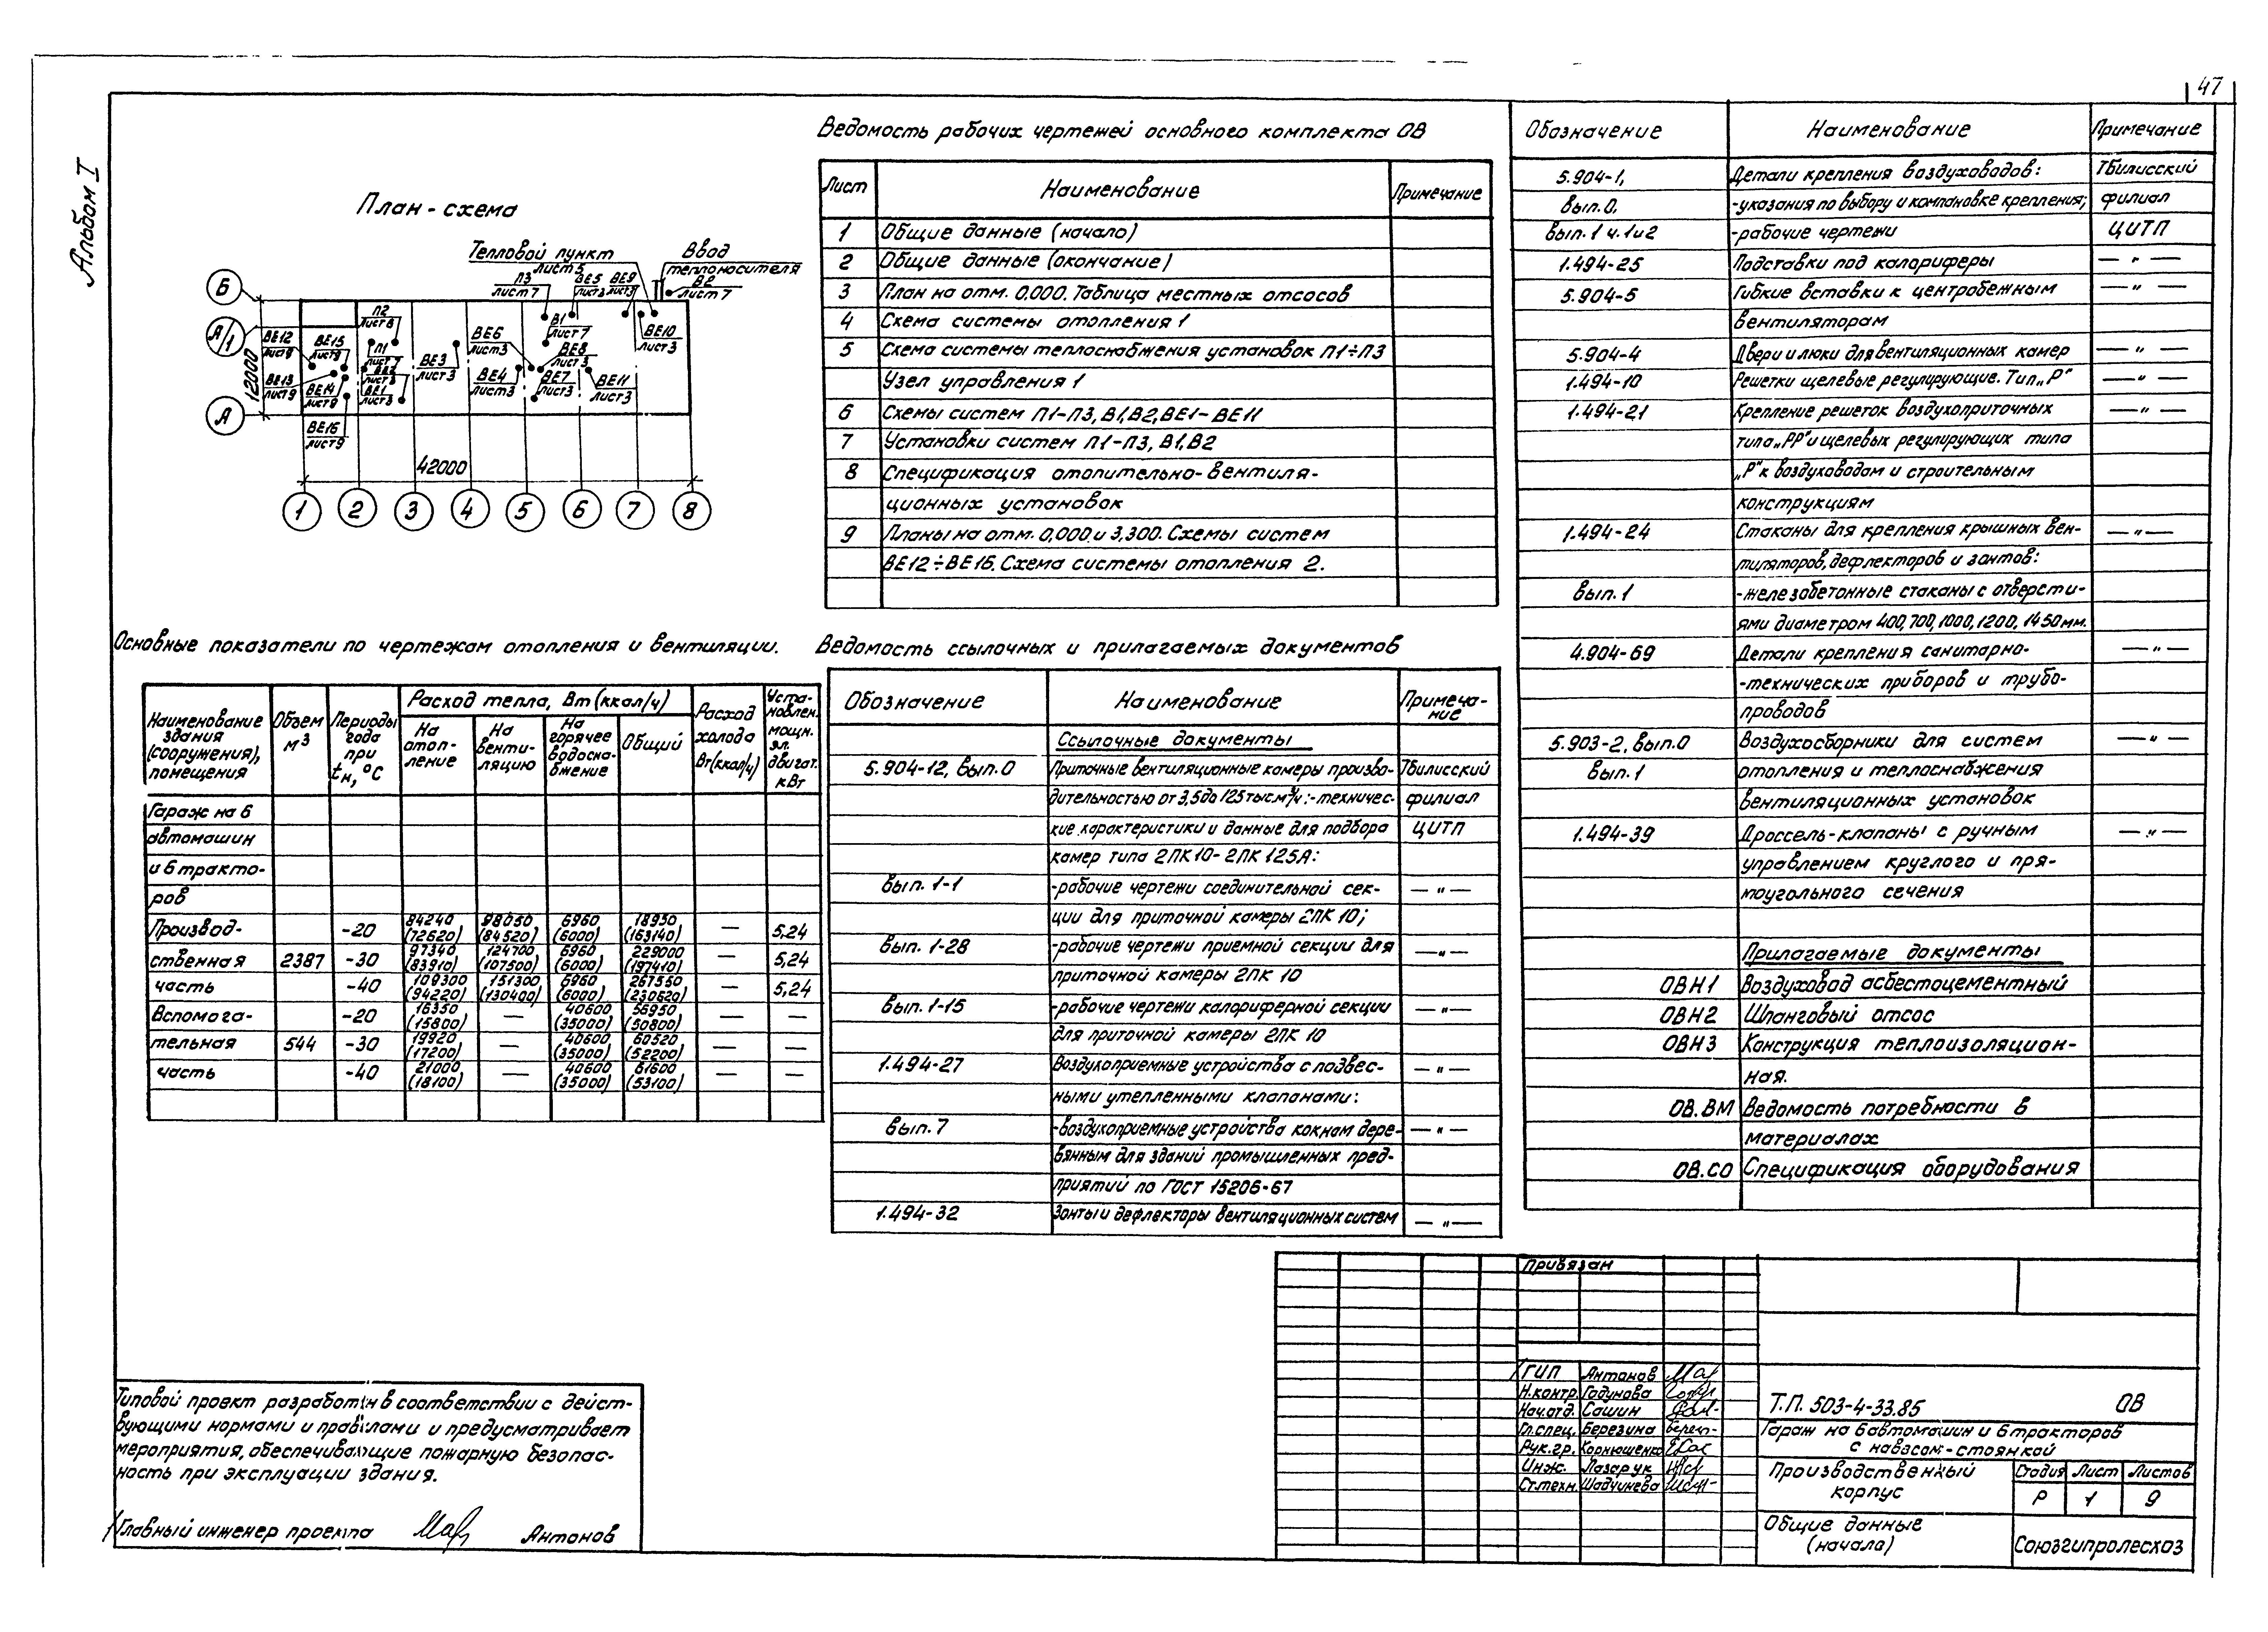 47
Альбом I
План-схема
Тепловой пункт
лист 5
Ввод
теплоносителя
П3
лист 7
ВЕ5
лист 3
ВЕ9
лист 3
В2
лист 7
Б
А/1
А
12000
П2
лист 6
ВЕ12
лист 9
ВЕ15
лист 9
П1
лист 7
ВЕ3
лист 3
ВЕ6
лист 3
В1
лист 7
ВЕ8
лист 3
ВЕ10
лист 3
ВЕ13
лист 9
ВЕ14
лист 9
ВЕ2
лист 3
ВЕ1
лист 3
ВЕ4
лист 3
ВЕ7
лист 3
ВЕ11
лист 3
ВЕ16
лист 9
42000
1 2 3 4 5 6 7 8
Ведомость рабочих чертежей основного комплекта ОВ
Лист Наименование Примечание
1 Общие данные (начало)
2 Общие данные (окончание)
3 План на отм. 0,000. Таблица местных отсосов
4 Схема системы отопления 1
5 Схема системы теплоснабжения установок П1÷П3
Узел управления 1
6 Схемы систем П1-П3, В1, В2, ВЕ1-ВЕ11
7 Установки систем П1-П3, В1, В2
8 Спецификация отопительно-вентиля-
ционных установок
9 Планы на отм. 0,000 и 3,300. Схемы систем
ВЕ12÷ВЕ16. Схема системы отопления 2.
Основные показатели по чертежам отопления и вентиляции.
Наименование здания (сооружения), помещения
Объем м3
Периоды года при tн, °С
Расход тепла, Вт (ккал/ч)
На отоп-ление
На венти-ляцию
На горячее водосна-бжение
Общий
Расход холода Вт (ккал/ч)
Уста-новлен. мощн. эл. двигат. кВт
Гараж на 6
автомашин
и 6 тракто-
ров
Производ- -20 84240 (72620) 98050 (84520) 6960 (6000) 18950 (163140) — 5,24
ственная 2387 -30 97340 (83910) 124700 (107500) 6960 (6000) 229000 (197410) — 5,24
часть -40 109300 (94220) 151300 (130400) 6960 (6000) 267550 (230620) — 5,24
Вспомога- -20 16350 (15800) — 40600 (35000) 56950 (50800) — —
тельная 544 -30 19920 (17200) — 40600 (35000) 60520 (52200) — —
часть -40 21000 (18100) — 40600 (35000) 61600 (53100) — —
Ведомость ссылочных и прилагаемых документов
Обозначение Наименование Примеча-ние
Ссылочные документы
5.904-12, вып.0 Приточные вентиляционные камеры произво- Тбилисский
дительностью от 3,5 до 125 тыс.м³/ч:-техничес- филиал
кие характеристики и данные для подбора ЦИТП
камер типа 2ПК10-2ПК125А:
вып. 1-1 -рабочие чертежи соединительной сек- —"—
ции для приточной камеры 2ПК 10;
вып. 1-28 -рабочие чертежи приемной секции для —"—
приточной камеры 2ПК 10
вып. 1-15 -рабочие чертежи калориферной секции —"—
для приточной камеры 2ПК 10
1.494-27 Воздухоприемные устройства с подвес- —"—
ными утепленными клапанами:
вып. 7 -воздухоприемные устройства к окнам дере- —"—
вянным для зданий промышленных пред-
приятий по ГОСТ 15206-67
1.494-32 Зонты и дефлекторы вентиляционных систем —"—
Обозначение Наименование Примечание
5.904-1, Детали крепления воздуховодов: Тбилисский
вып.0, -указания по выбору и компановке крепления; филиал
вып. 1 ч. 1и2 -рабочие чертежи ЦИТП
1.494-25 Подставки под калориферы —"—
5.904-5 Гибкие вставки к центробежным —"—
вентиляторам
5.904-4 Двери и люки для вентиляционных камер —"—
1.494-10 Решетки щелевые регулирующие. Тип „Р" —"—
1.494-21 Крепление решеток воздухоприточных —"—
типа „РР" и щелевых регулирующих типа
„Р" к воздуховодам и строительным
конструкциям
1.494-24 Стаканы для крепления крышных вен- —"—
тиляторов, дефлекторов и зонтов:
вып. 1 -железобетонные стаканы с отверсти-
ями диаметром 400, 700, 1000, 1200, 1450 мм.
4.904-69 Детали крепления санитарно- —"—
-технических приборов и трубо-
проводов
5.903-2, вып.0 Воздухосборники для систем —"—
вып. 1 отопления и теплоснабжения
вентиляционных установок
1.494-39 Дроссель-клапаны с ручным —"—
управлением круглого и пря-
моугольного сечения
Прилагаемые документы
ОВН1 Воздуховод асбестоцементный
ОВН2 Шланговый отсос
ОВН3 Конструкция теплоизоляцион-
ная.
ОВ.ВМ Ведомость потребности в
материалах
ОВ.СО Спецификация оборудования
Типовой проект разработан в соответствии с дейст-
вующими нормами и правилами и предусматривает
мероприятия, обеспечивающие пожарную безопас-
ность при эксплуации здания.
Главный инженер проекта Антонов
Привязан
ГИП Антонов
Н.контр. Годунова
Нач.отд. Сашин
Гл.спец. Березина
Рук.гр. Корнюшенко
Инж. Лазарук
Ст.техн. Шадчинева
Т.П. 503-4-33.85 ОВ
Гараж на 6 автомашин и 6 тракторов
с навесом-стоянкой
Производственный
корпус
Стадия Лист Листов
Р 1 9
Общие данные
(начала)
Союзгипролесхоз